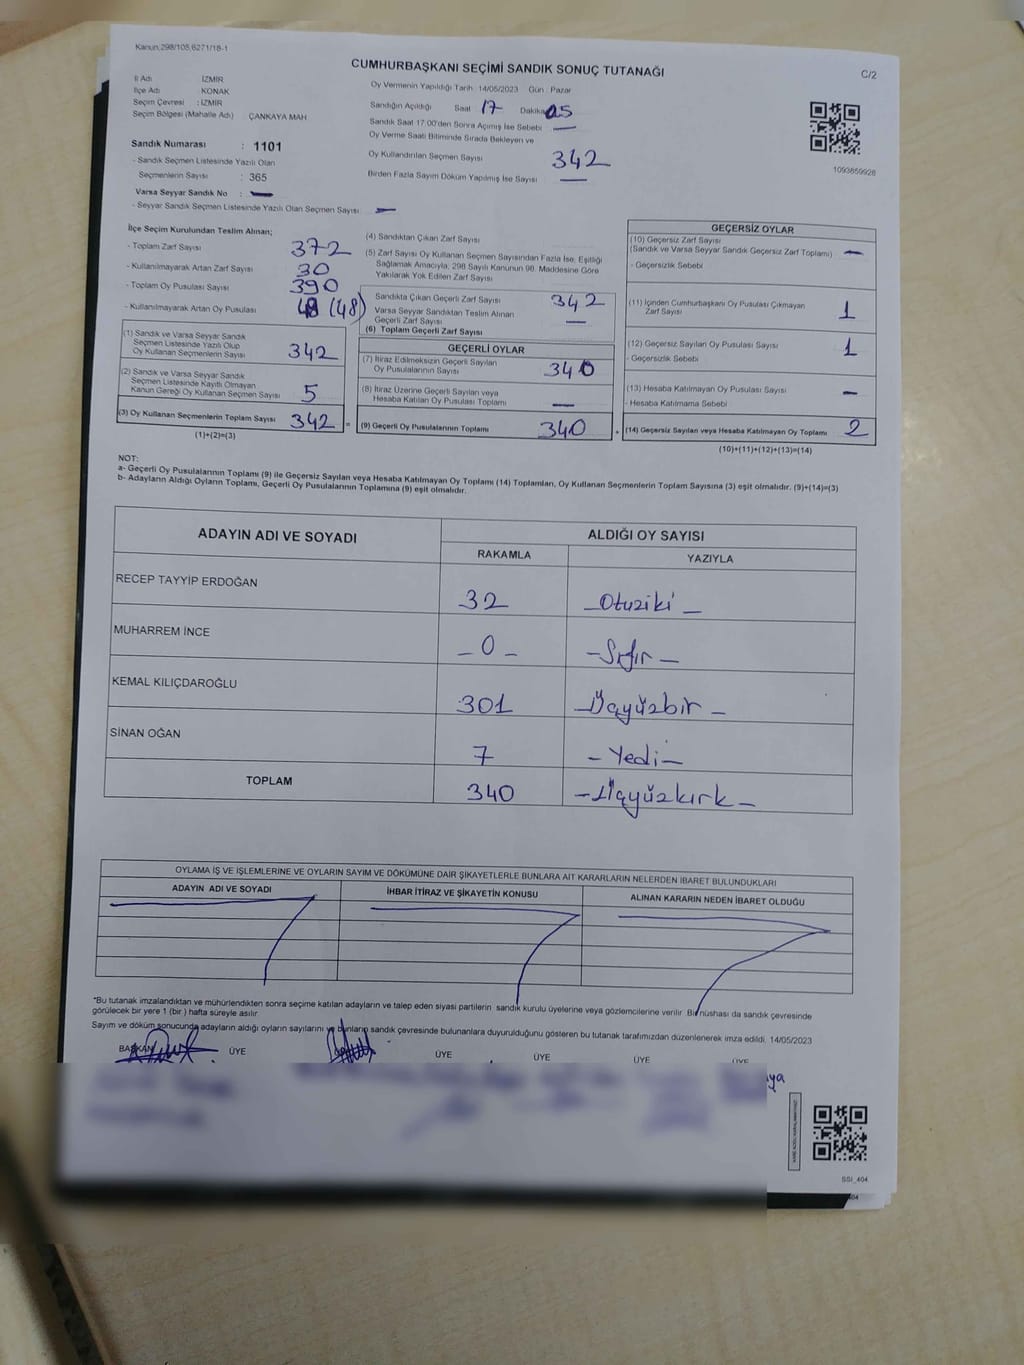 Kanun:298/105,6271/18-1
CUMHURBAŞKANI SEÇİMİ SANDIK SONUÇ TUTANAĞI
C/2
İl Adı İZMİR
İlçe Adı KONAK
Seçim Çevresi : İZMİR
Seçim Bölgesi (Mahalle Adı) : ÇANKAYA MAH
Sandık Numarası : 1101
- Sandık Seçmen Listesinde Yazılı Olan
Seçmenlerin Sayısı : 365
Varsa Seyyar Sandık No : —
- Seyyar Sandık Seçmen Listesinde Yazılı Olan Seçmen Sayısı —
Oy Vermenin Yapıldığı Tarih 14/05/2023 Gün : Pazar
Sandığın Açıldığı Saat 17 Dakika 05
Sandık Saat 17.00'den Sonra Açımış İse Sebebi —
Oy Verme Saati Bitiminde Sırada Bekleyen ve
Oy Kullandırılan Seçmen Sayısı 342
Birden Fazla Sayım Döküm Yapılmış İse Sayısı —
1093859928
İlçe Seçim Kurulundan Teslim Alınan;
- Toplam Zarf Sayısı 372
- Kullanılmayarak Artan Zarf Sayısı 30
- Toplam Oy Pusulası Sayısı 390
- Kullanılmayarak Artan Oy Pusulası 48 (48)
(1) Sandık ve Varsa Seyyar Sandık
Seçmen Listesinde Yazılı Olup
Oy Kullanan Seçmenlerin Sayısı 342
(2) Sandık ve Varsa Seyyar Sandık
Seçmen Listesinde Kayıtlı Olmayan
Kanun Gereği Oy Kullanan Seçmen Sayısı 5
(3) Oy Kullanan Seçmenlerin Toplam Sayısı 342 =
(1)+(2)=(3)
(4) Sandıktan Çıkan Zarf Sayısı
(5) Zarf Sayısı Oy Kullanan Seçmen Sayısından Fazla İse, Eşitliği
Sağlamak Amacıyla, 298 Sayılı Kanunun 98. Maddesine Göre
Yakılarak Yok Edilen Zarf Sayısı
Sandıkta Çıkan Geçerli Zarf Sayısı 342
Varsa Seyyar Sandıktan Teslim Alınan
Geçerli Zarf Sayısı —
(6) Toplam Geçerli Zarf Sayısı
GEÇERLİ OYLAR
(7) İtiraz Edilmeksizin Geçerli Sayılan
Oy Pusulalarının Sayısı 340
(8) İtiraz Üzerine Geçerli Sayılan veya
Hesaba Katılan Oy Pusulası Toplamı —
(9) Geçerli Oy Pusulalarının Toplamı 340 +
GEÇERSİZ OYLAR
(10) Geçersiz Zarf Sayısı
(Sandık ve Varsa Seyyar Sandık Geçersiz Zarf Toplamı) —
- Geçersizlik Sebebi
(11) İçinden Cumhurbaşkanı Oy Pusulası Çıkmayan
Zarf Sayısı 1
(12) Geçersiz Sayılan Oy Pusulası Sayısı 1
- Geçersizlik Sebebi
(13) Hesaba Katılmayan Oy Pusulası Sayısı —
- Hesaba Katılmama Sebebi
(14) Geçersiz Sayılan veya Hesaba Katılmayan Oy Toplamı 2
(10)+(11)+(12)+(13)=(14)
NOT:
a- Geçerli Oy Pusulalarının Toplamı (9) ile Geçersiz Sayılan veya Hesaba Katılmayan Oy Toplamı (14) Toplamları, Oy Kullanan Seçmenlerin Toplam Sayısına (3) eşit olmalıdır. (9)+(14)=(3)
b- Adayların Aldığı Oyların Toplamı, Geçerli Oy Pusulalarının Toplamına (9) eşit olmalıdır.
ADAYIN ADI VE SOYADI ALDIĞI OY SAYISI
RAKAMLA YAZIYLA
RECEP TAYYİP ERDOĞAN 32 - Otuziki -
MUHARREM İNCE - 0 - - Sıfır -
KEMAL KILIÇDAROĞLU 301 - Üçyüzbir -
SİNAN OĞAN 7 - Yedi -
TOPLAM 340 - Üçyüzkırk -
OYLAMA İŞ VE İŞLEMLERİNE VE OYLARIN SAYIM VE DÖKÜMÜNE DAİR ŞİKAYETLERLE BUNLARA AİT KARARLARIN NELERDEN İBARET BULUNDUKLARI
ADAYIN ADI VE SOYADI İHBAR İTİRAZ VE ŞİKAYETİN KONUSU ALINAN KARARIN NEDEN İBARET OLDUĞU
*Bu tutanak imzalandıktan ve mühürlendikten sonra seçime katılan adayların ve talep eden siyasi partilerin sandık kurulu üyelerine veya gözlemcilerine verilir. Bir nüshası da sandık çevresinde
görülecek bir yere 1 (bir ) hafta süreyle asılır.
Sayım ve döküm sonucunda adayların aldığı oyların sayılarını ve bunların sandık çevresinde bulunanlara duyurulduğunu gösteren bu tutanak tarafımızdan düzenlenerek imza edildi. 14/05/2023
BAŞKAN ÜYE ÜYE ÜYE ÜYE ÜYE
SSI_404